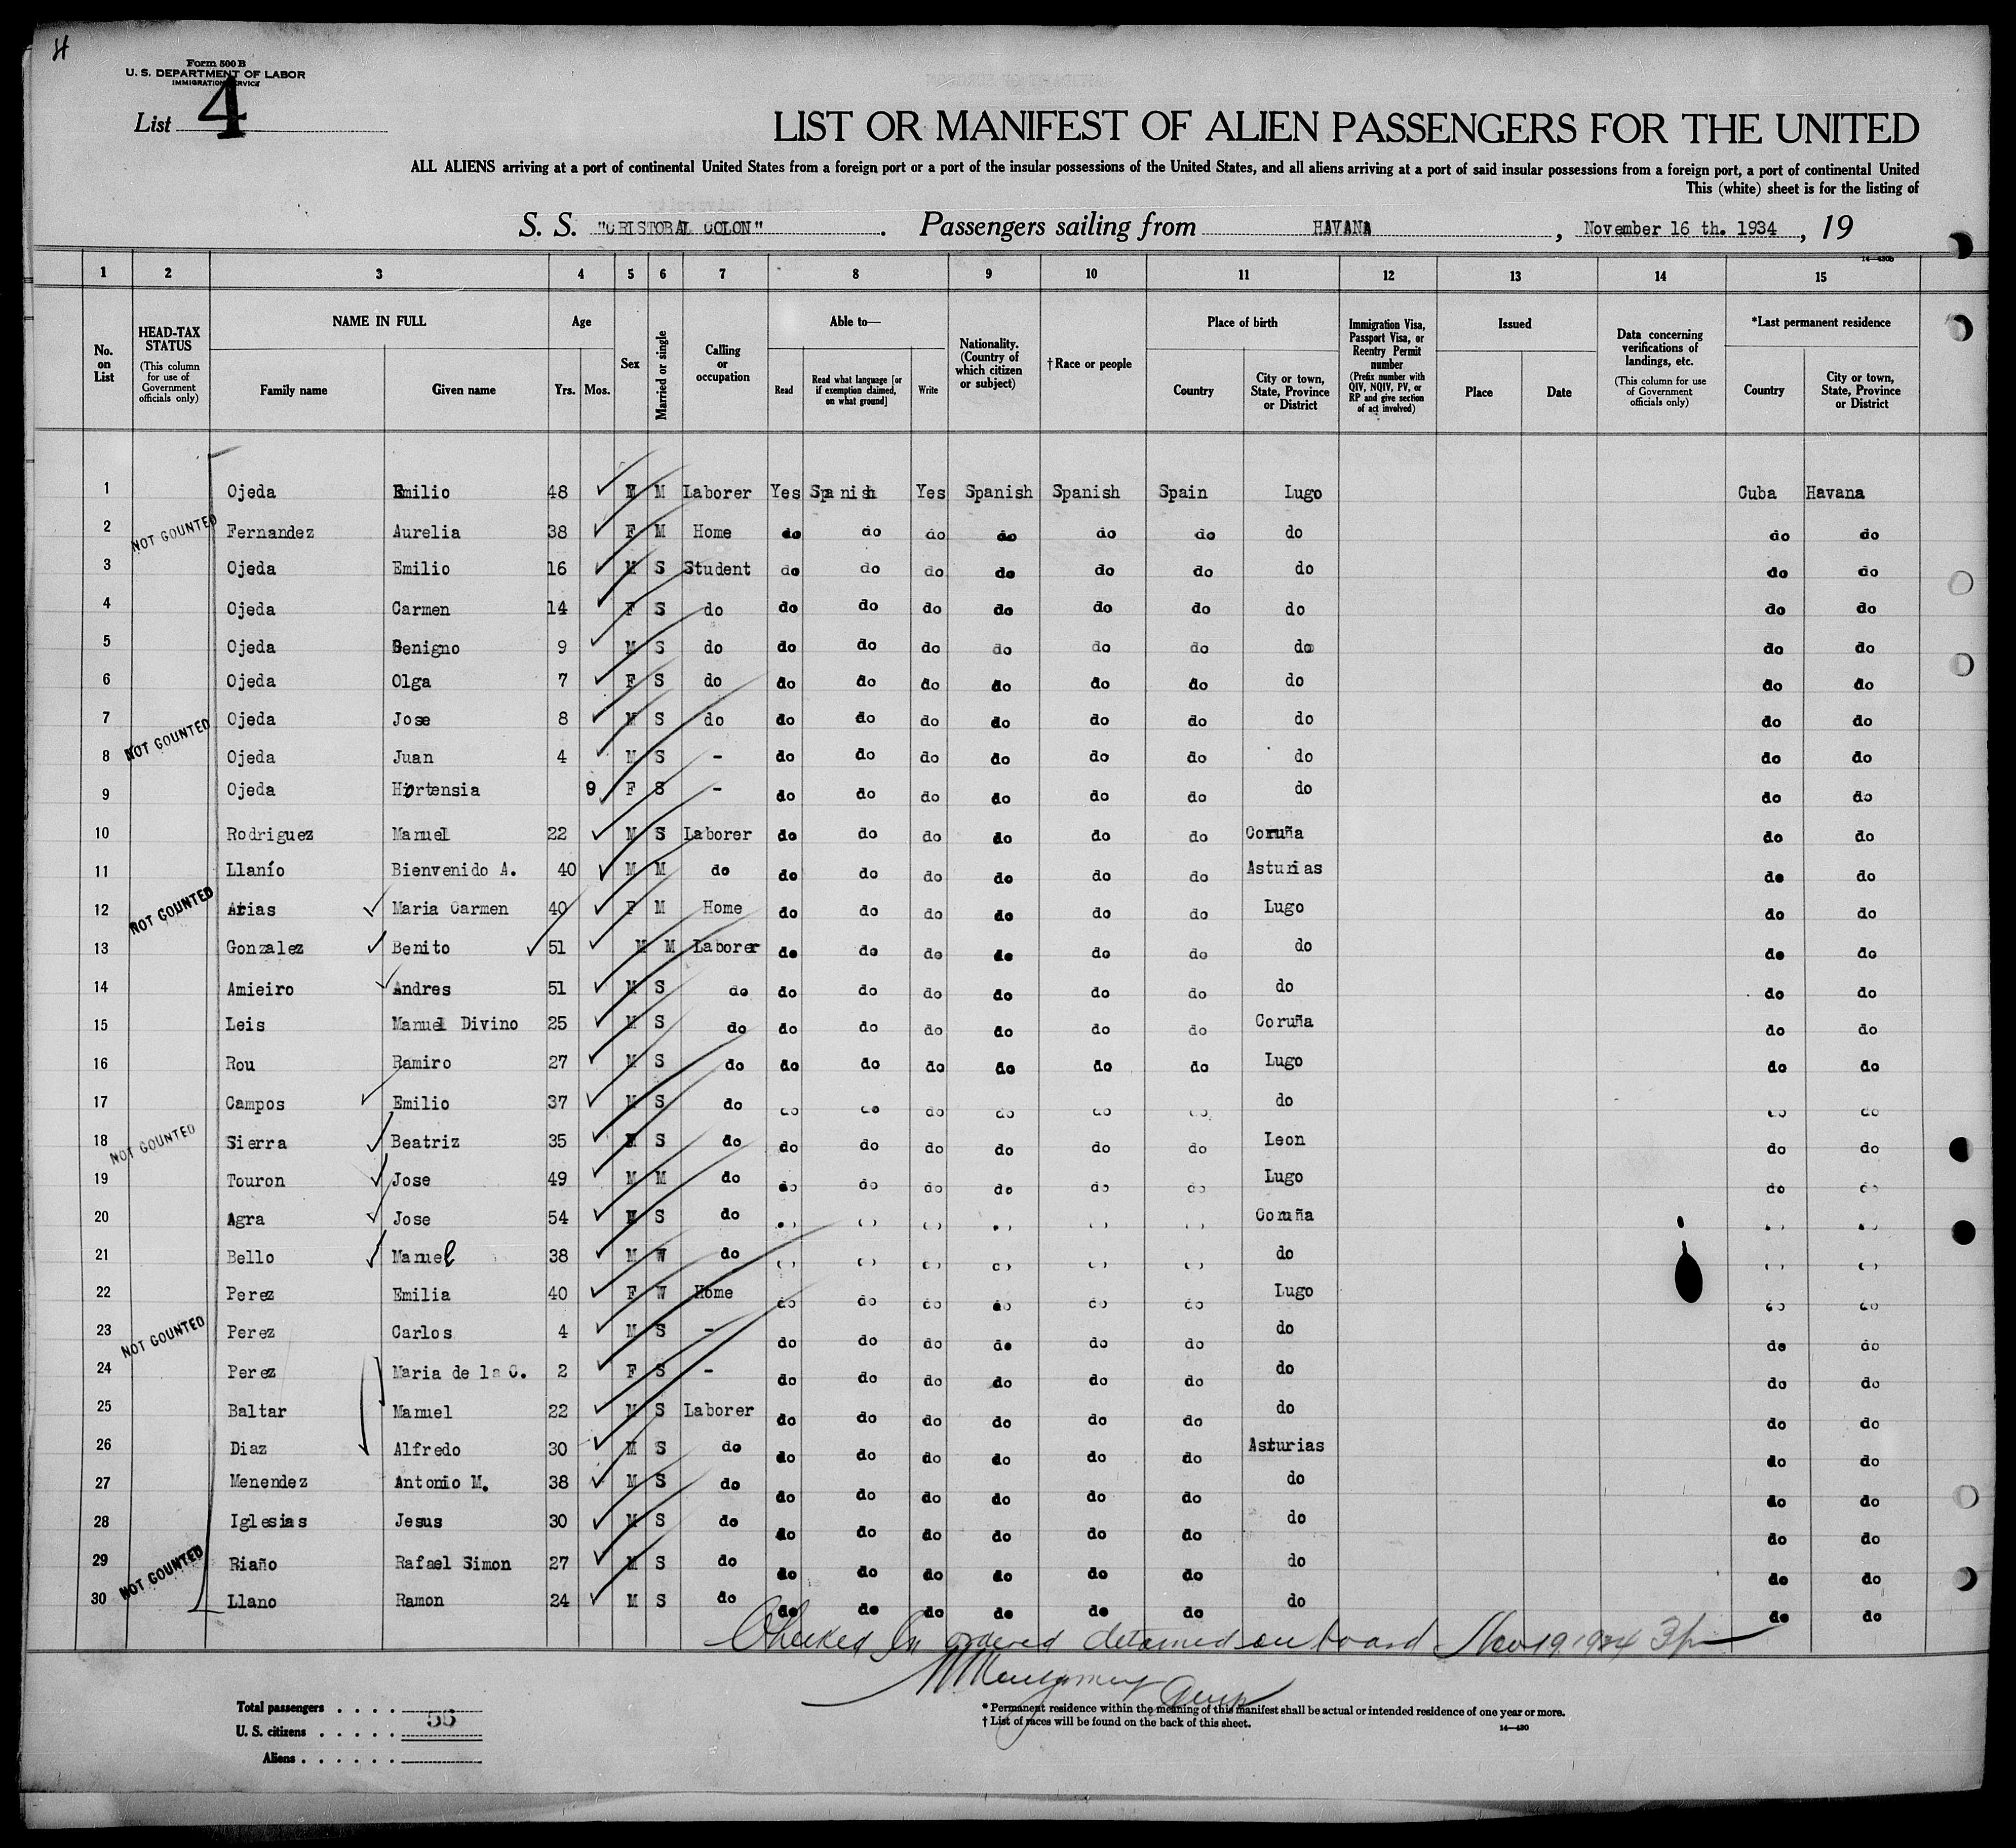 4
Form 500 B
U. S. DEPARTMENT OF LABOR
IMMIGRATION SERVICE
List 4
LIST OR MANIFEST OF ALIEN PASSENGERS FOR THE UNITED
ALL ALIENS arriving at a port of continental United States from a foreign port or a port of the insular possessions of the United States, and all aliens arriving at a port of said insular possessions from a foreign port, a port of continental United
This (white) sheet is for the listing of
S. S. "CRISTOBAL COLON". Passengers sailing from HAVANA, November 16 th. 1934, 19
14—430b
1 2 3 4 5 6 7 8 9 10 11 12 13 14 15
No. on List
HEAD-TAX STATUS (This column for use of Government officials only)
NAME IN FULL Family name Given name
Age Yrs. Mos.
Sex
Married or single
Calling or occupation
Able to— Read Read what language [or if exemption claimed, on what ground] Write
Nationality. (Country of which citizen or subject)
†Race or people
Place of birth Country City or town, State, Province or District
Immigration Visa, Passport Visa, or Reentry Permit number (Prefix number with QIV, NQIV, PV, or RP and give section of act involved)
Issued Place Date
Data concerning verifications of landings, etc. (This column for use of Government officials only)
*Last permanent residence Country City or town, State, Province or District
1 Ojeda Emilio 48 M M Laborer Yes Spanish Yes Spanish Spanish Spain Lugo Cuba Havana
2 NOT COUNTED Fernandez Aurelia 38 F M Home do do do do do do do do do
3 Ojeda Emilio 16 M S Student do do do do do do do do do
4 Ojeda Carmen 14 F S do do do do do do do do do do
5 Ojeda Benigno 9 M S do do do do do do do do do do
6 Ojeda Olga 7 F S do do do do do do do do do do
7 Ojeda Jose 8 M S do do do do do do do do do do
8 NOT COUNTED Ojeda Juan 4 M S - do do do do do do do do do
9 Ojeda Hortensia 9 F S - do do do do do do do do do
10 Rodriguez Manuel 22 M S Laborer do do do do do do Coruña do do
11 Llanío Bienvenido A. 40 M M do do do do do do do Asturias do do
12 NOT COUNTED Arias Maria Carmen 40 F M Home do do do do do do Lugo do do
13 Gonzalez Benito 51 M M Laborer do do do do do do do do do
14 Amieiro Andres 51 M S do do do do do do do do do do
15 Leis Manuel Divino 25 M S do do do do do do do Coruña do do
16 Rou Ramiro 27 M S do do do do do do do Lugo do do
17 Campos Emilio 37 M S do do do do do do do do do do
18 NOT COUNTED Sierra Beatriz 35 M S do do do do do do do Leon do do
19 Touron Jose 49 M M do do do do do do do Lugo do do
20 Agra Jose 54 M S do Coruña
21 Bello Manuel 38 M W do do
22 Perez Emilia 40 F W Home do do do do do do Lugo do do
23 NOT COUNTED Perez Carlos 4 M S - do do do do do do do do do
24 Perez Maria de la C. 2 F S - do do do do do do do do do
25 Baltar Manuel 22 M S Laborer do do do do do do do do do
26 Diaz Alfredo 30 M S do do do do do do do Asturias do do
27 Menendez Antonio M. 38 M S do do do do do do do do do do
28 Iglesias Jesus 30 M S do do do do do do do do do do
29 NOT COUNTED Riaño Rafael Simon 27 M S do do do do do do do do do do
30 Llano Ramon 24 M S do do do do do do do do do do
Checked In ordered detained on board Nov 19, 1934
Montgomery
Total passengers . . . .
55
U. S. citizens . . . . .
Aliens . . . . . .
* Permanent residence within the meaning of this manifest shall be actual or intended residence of one year or more.
† List of races will be found on the back of this sheet.
14—430